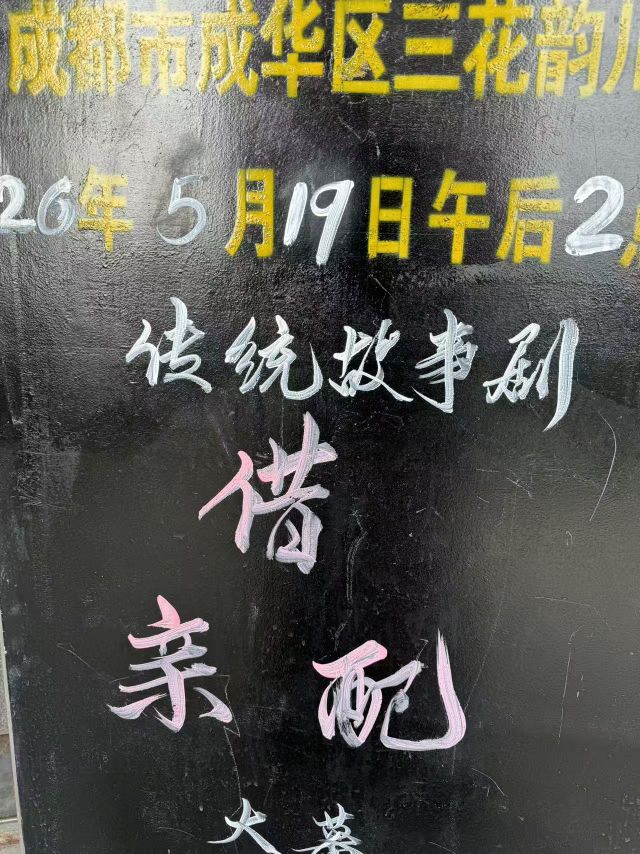 成都市成华区三花韵川
26年5月19日午后2点
传统故事剧
借
亲配
大幕